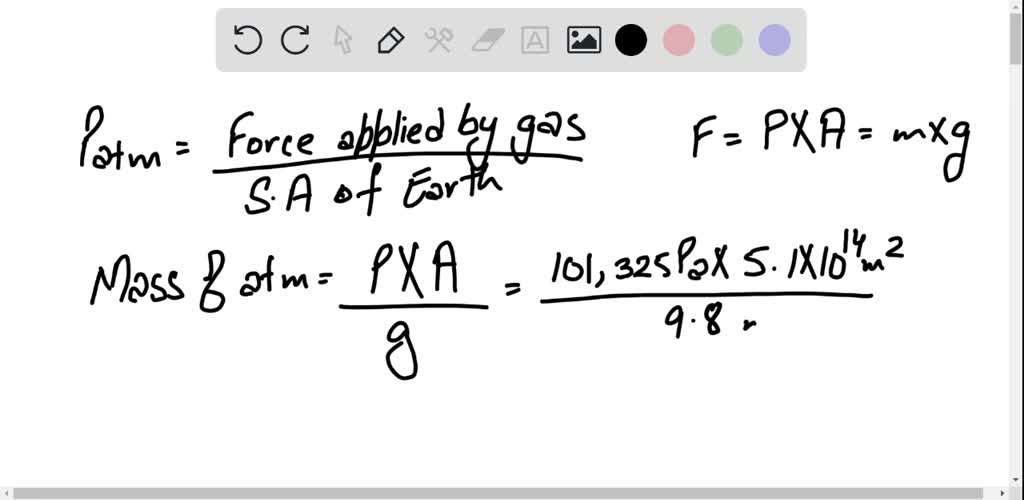 A
Patm = Force applied by gas / S.A of Earth
F = PXA = mxg
Mass of atm = PXA / g = 101,325 Pa X 5.1X10^14 m^2 / 9.8 m